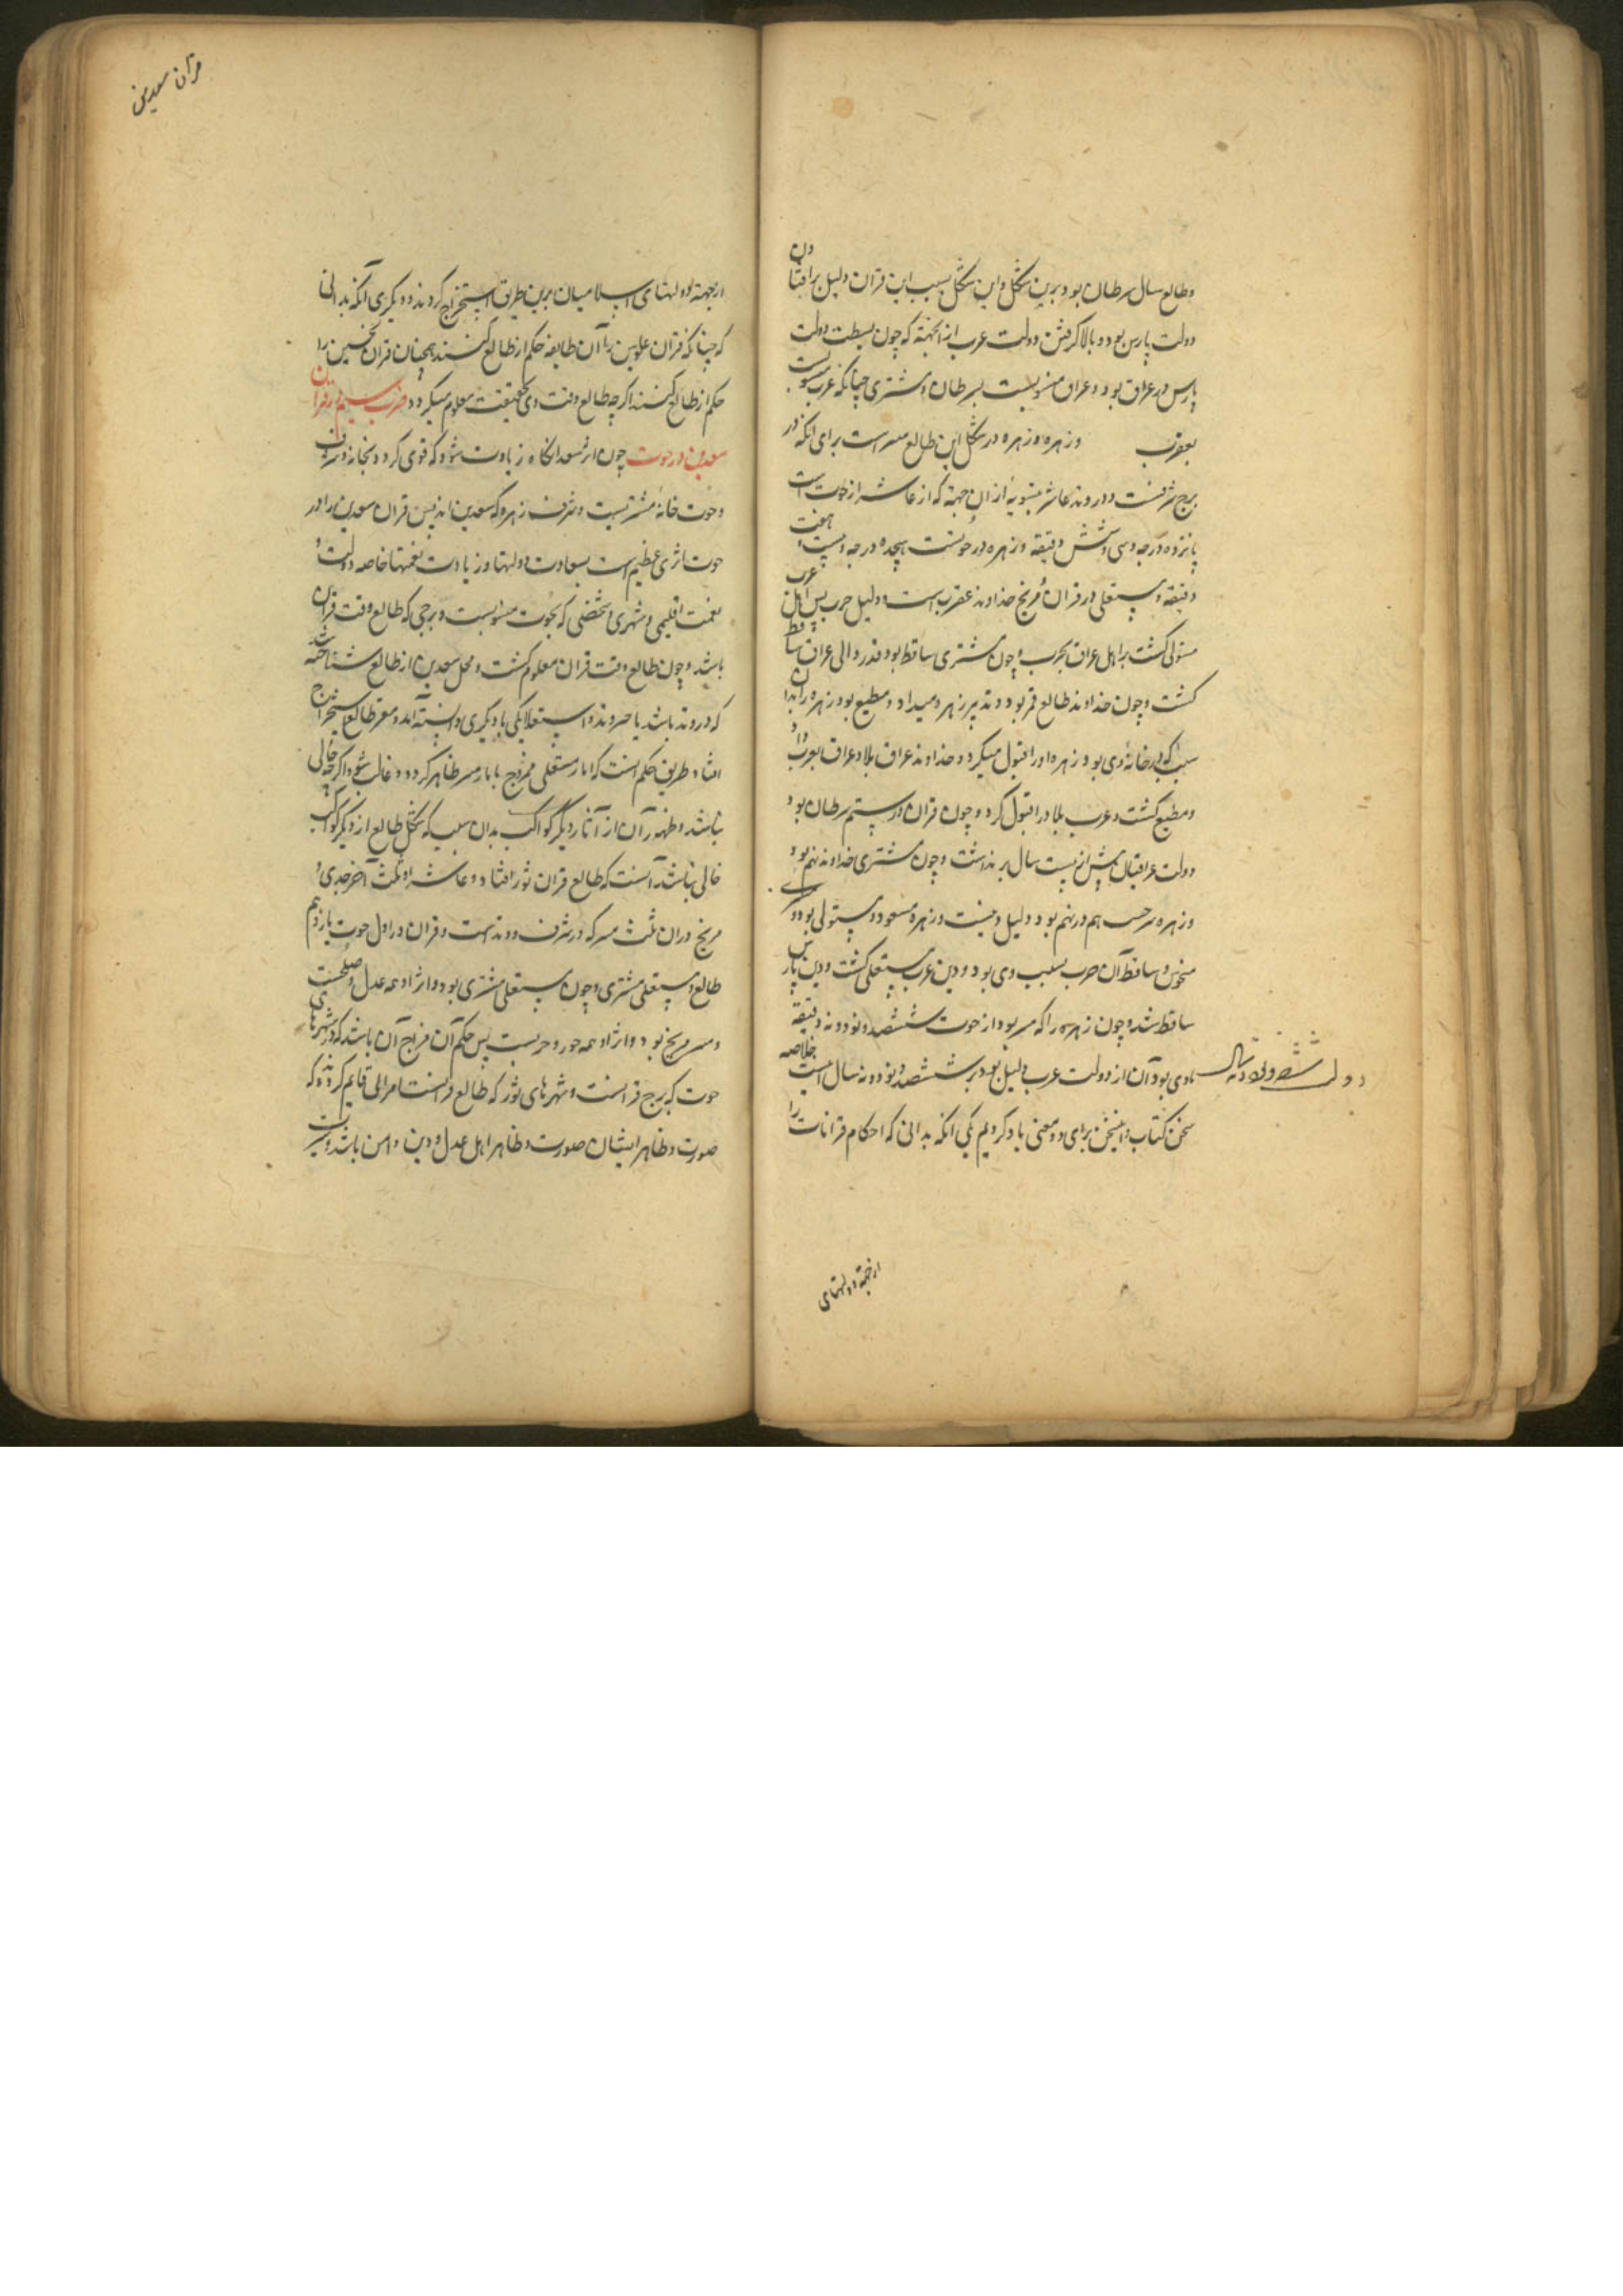 وطالع سال سرطان بود و برین شکل و این شکل بسبب این قران دلیل برافتادن
دولت پارس بود و بالا گرفتن دولت عرب از انجهة که چون بسطت دولت
پارس در عراق بود و عراق منسوبست بسرطان و مشتری چنانکه عرب منسوبست
بعقرب و زهره و زهره در شکل این طالع است برای آنکه در
برج شرفست و در وتد عاشر از آن جهة که از عاشر از حوت است
پانزده درجه و سی و شش دقیقه و زهره در حوتست هیجده درجه و بیست و هفت
دقیقه و مستعلی در قران و مریخ خداوند عقرب است و دلیل حرب پس اهل عرب
مستولی گشت بر اهل عراق بحرب و چون مشتری ساقط بود قدر والی عراق ساقط
گشت و چون خداوند طالع قمر بود و تدبیر زهره میداد و مطیع بود زهره را بدان
سبب که در خانهٔ وی بود و زهره او را قبول میکرد و خداوند عراق بلاد عراق بعرب داد
و مطیع گشت و عرب بلاد را قبول کرد و چون قران در بیستم سرطان بود
دولت عراقیان بیش از بیست سال بر نداشت و چون مشتری خداوند نهم بود
و زهره هم در نهم بود و دلیل دینست و زهره مسعود و مستولی بود و مشتری
منحوس و ساقط آن حرب بسبب دین بود و دین عرب مستعلی گشت و دین پارس
ساقط شد و چون زهره را که بود از حوت ششصد و نود و نه دقیقه
مادی بود آن از دولت عرب دلیل بود بر ششصد و نود و نه سال اینست خلاصه
دولت ششصد و نود و نه سال
سخن کتاب و این سخن برای دو معنی یاد کردیم یکی آنکه بدانی که احکام قرانات را
ازجهة دولتهای
قران سعدین
ازجهة دولتهای اسلامیان برین طریق استخراج کردند و دیگری آنکه بدانی
که چنانکه قران علویین را آن طایفه حکم از طالع کنند همچنان قران نحسین را
حکم از طالع کنند اگرچه طالع وقت وی بحقیقت معلوم میگردد ضرب سیم در قران
سعدین در حوت چون اثر سعد آنگاه زیادت شود که قوی گردد بخانه و شرف
و حوت خانهٔ مشتریست و شرف زهره که سعدین اند پس قران سعدین را در
حوت اثری عظیم است بسعادت دولتها و زیادت نعمتها خاصه دولت و
نعمت اقلیمی و شهری و شخصی که بحوت منسوبست و برجی که طالع وقت قران
باشد و چون طالع وقت قران معلوم گشت و محل سعدین از طالع شناخته شد
که در وتد باشد یا جز وتد و استعلا یکی با دیگری دانسته آمد و مقر طالع استخراج
افتاد طریق حکم انست که اثار مستعلی ممزوج با بار ظاهر گردد و غالب شود اگرچه خالی
نباشد و ظهور آن از آثار دیگر کواکب بدان سبب که شکل طالع از دیگر کواکب
خالی نباشد آنست که طالع قران ثور افتاد و عاشر او ثلث آخر جدی و
مریخ در آن ثلث که در شرف و وتد است و قران در اول حوت یازدهم
طالع و مستعلی مشتری و چون مستعلی مشتری بود و اثر او همه عدل و صلحست
و مریخ بود و اثر او همه جور و حربست پس حکم آن مزاج آن باشد که در شهرهای
حوت که برج قرانست و شهرهای ثور که طالع قرانست قایم گردند که
صورت و ظاهر ایشان صورت و ظاهر اهل عدل و دین و امن باشد و سیرت